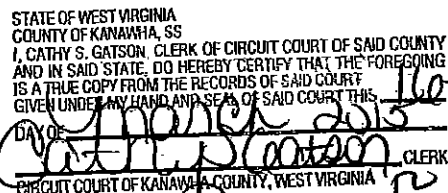 STATE OF WEST VIRGINIA
COUNTY OF KANAWHA, SS
I, CATHY S. GATSON, CLERK OF CIRCUIT COURT OF SAID COUNTY
AND IN SAID STATE, DO HEREBY CERTIFY THAT THE FOREGOING
IS A TRUE COPY FROM THE RECORDS OF SAID COURT
GIVEN UNDER MY HAND AND SEAL OF SAID COURT THIS 16
DAY OF March 2015
Cathy S Gatson CLERK
CIRCUIT COURT OF KANAWHA COUNTY, WEST VIRGINIA